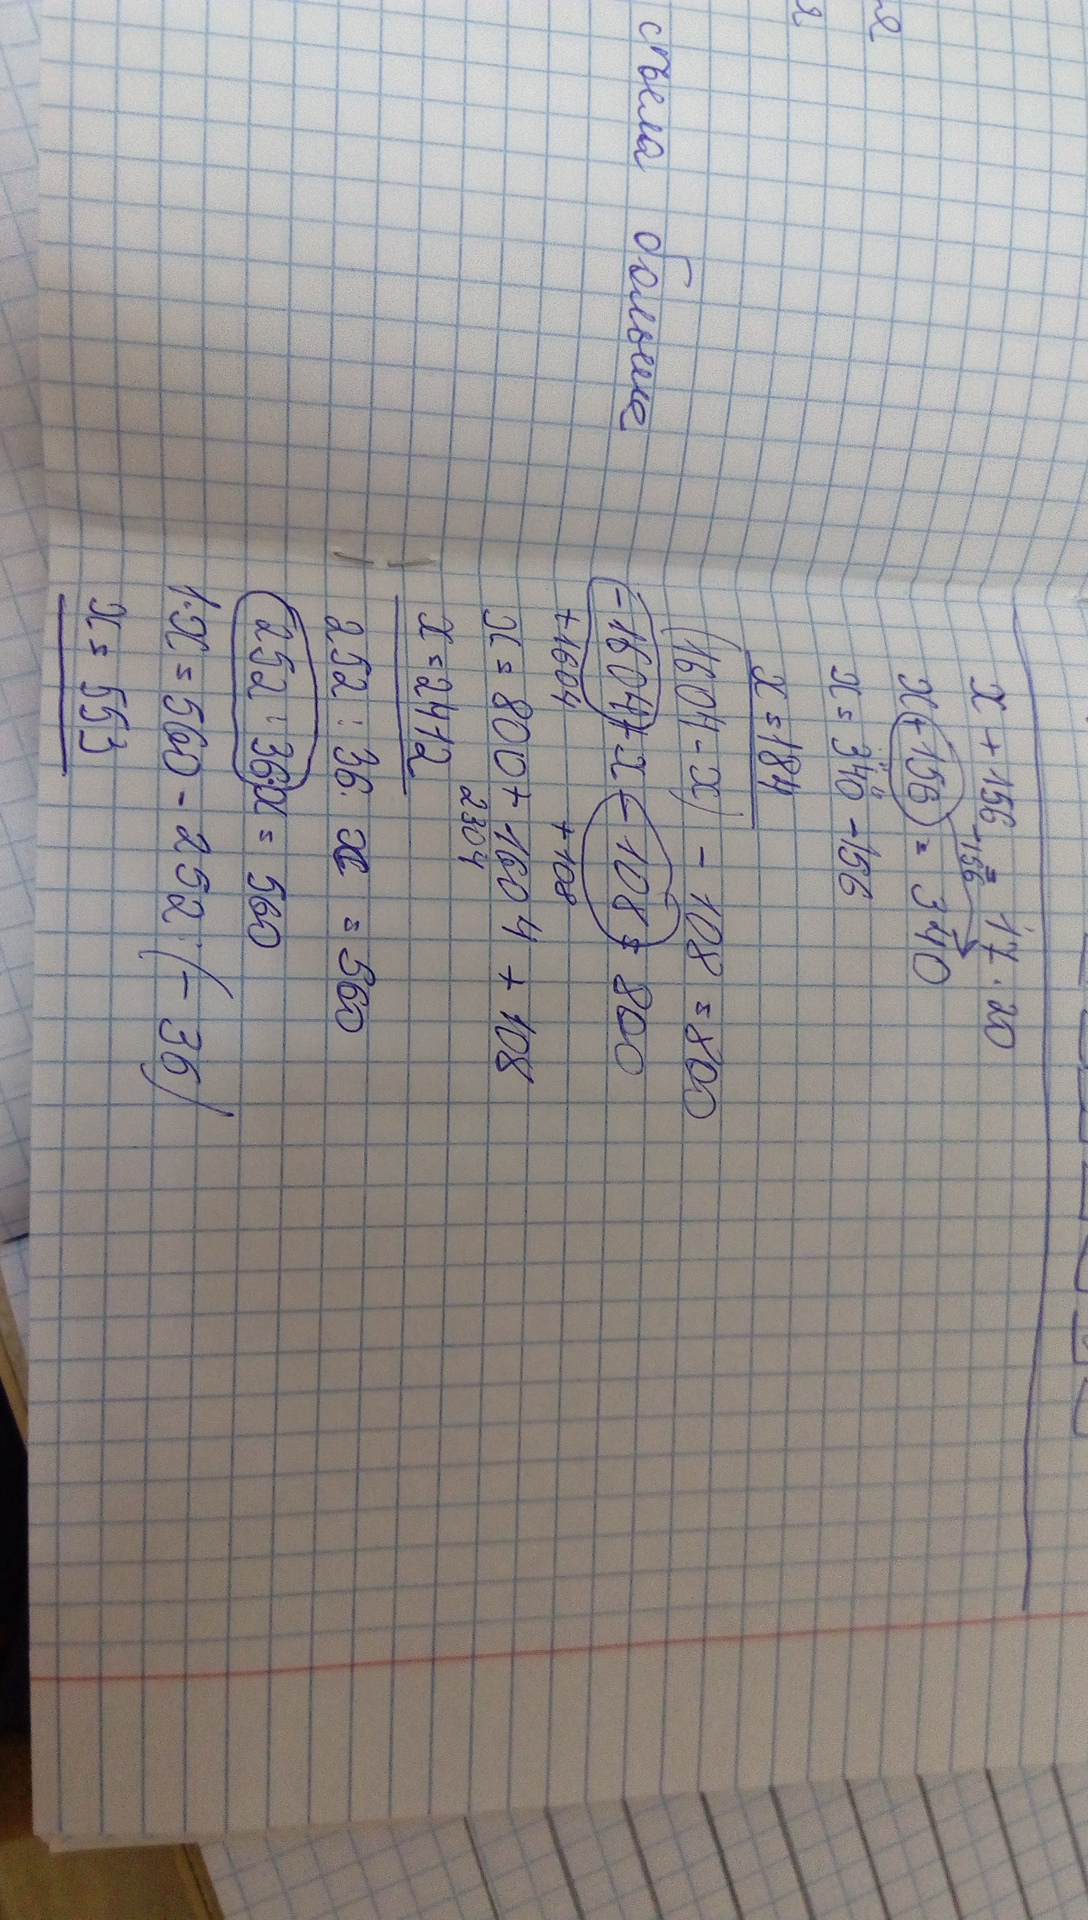 съела больше
x + 156 = 17 · 20
-156
x + 156 = 340
x = 340 - 156
x = 184
(1604 - x) - 108 = 800
-1604 + x - 108 = 800
+1604 +108
x = 800 + 1604 + 108
2304
x = 2412
252 : 36 · x = 560
252 : 36 · x = 560
1·x = 560 - 252 : (- 36)
x = 553